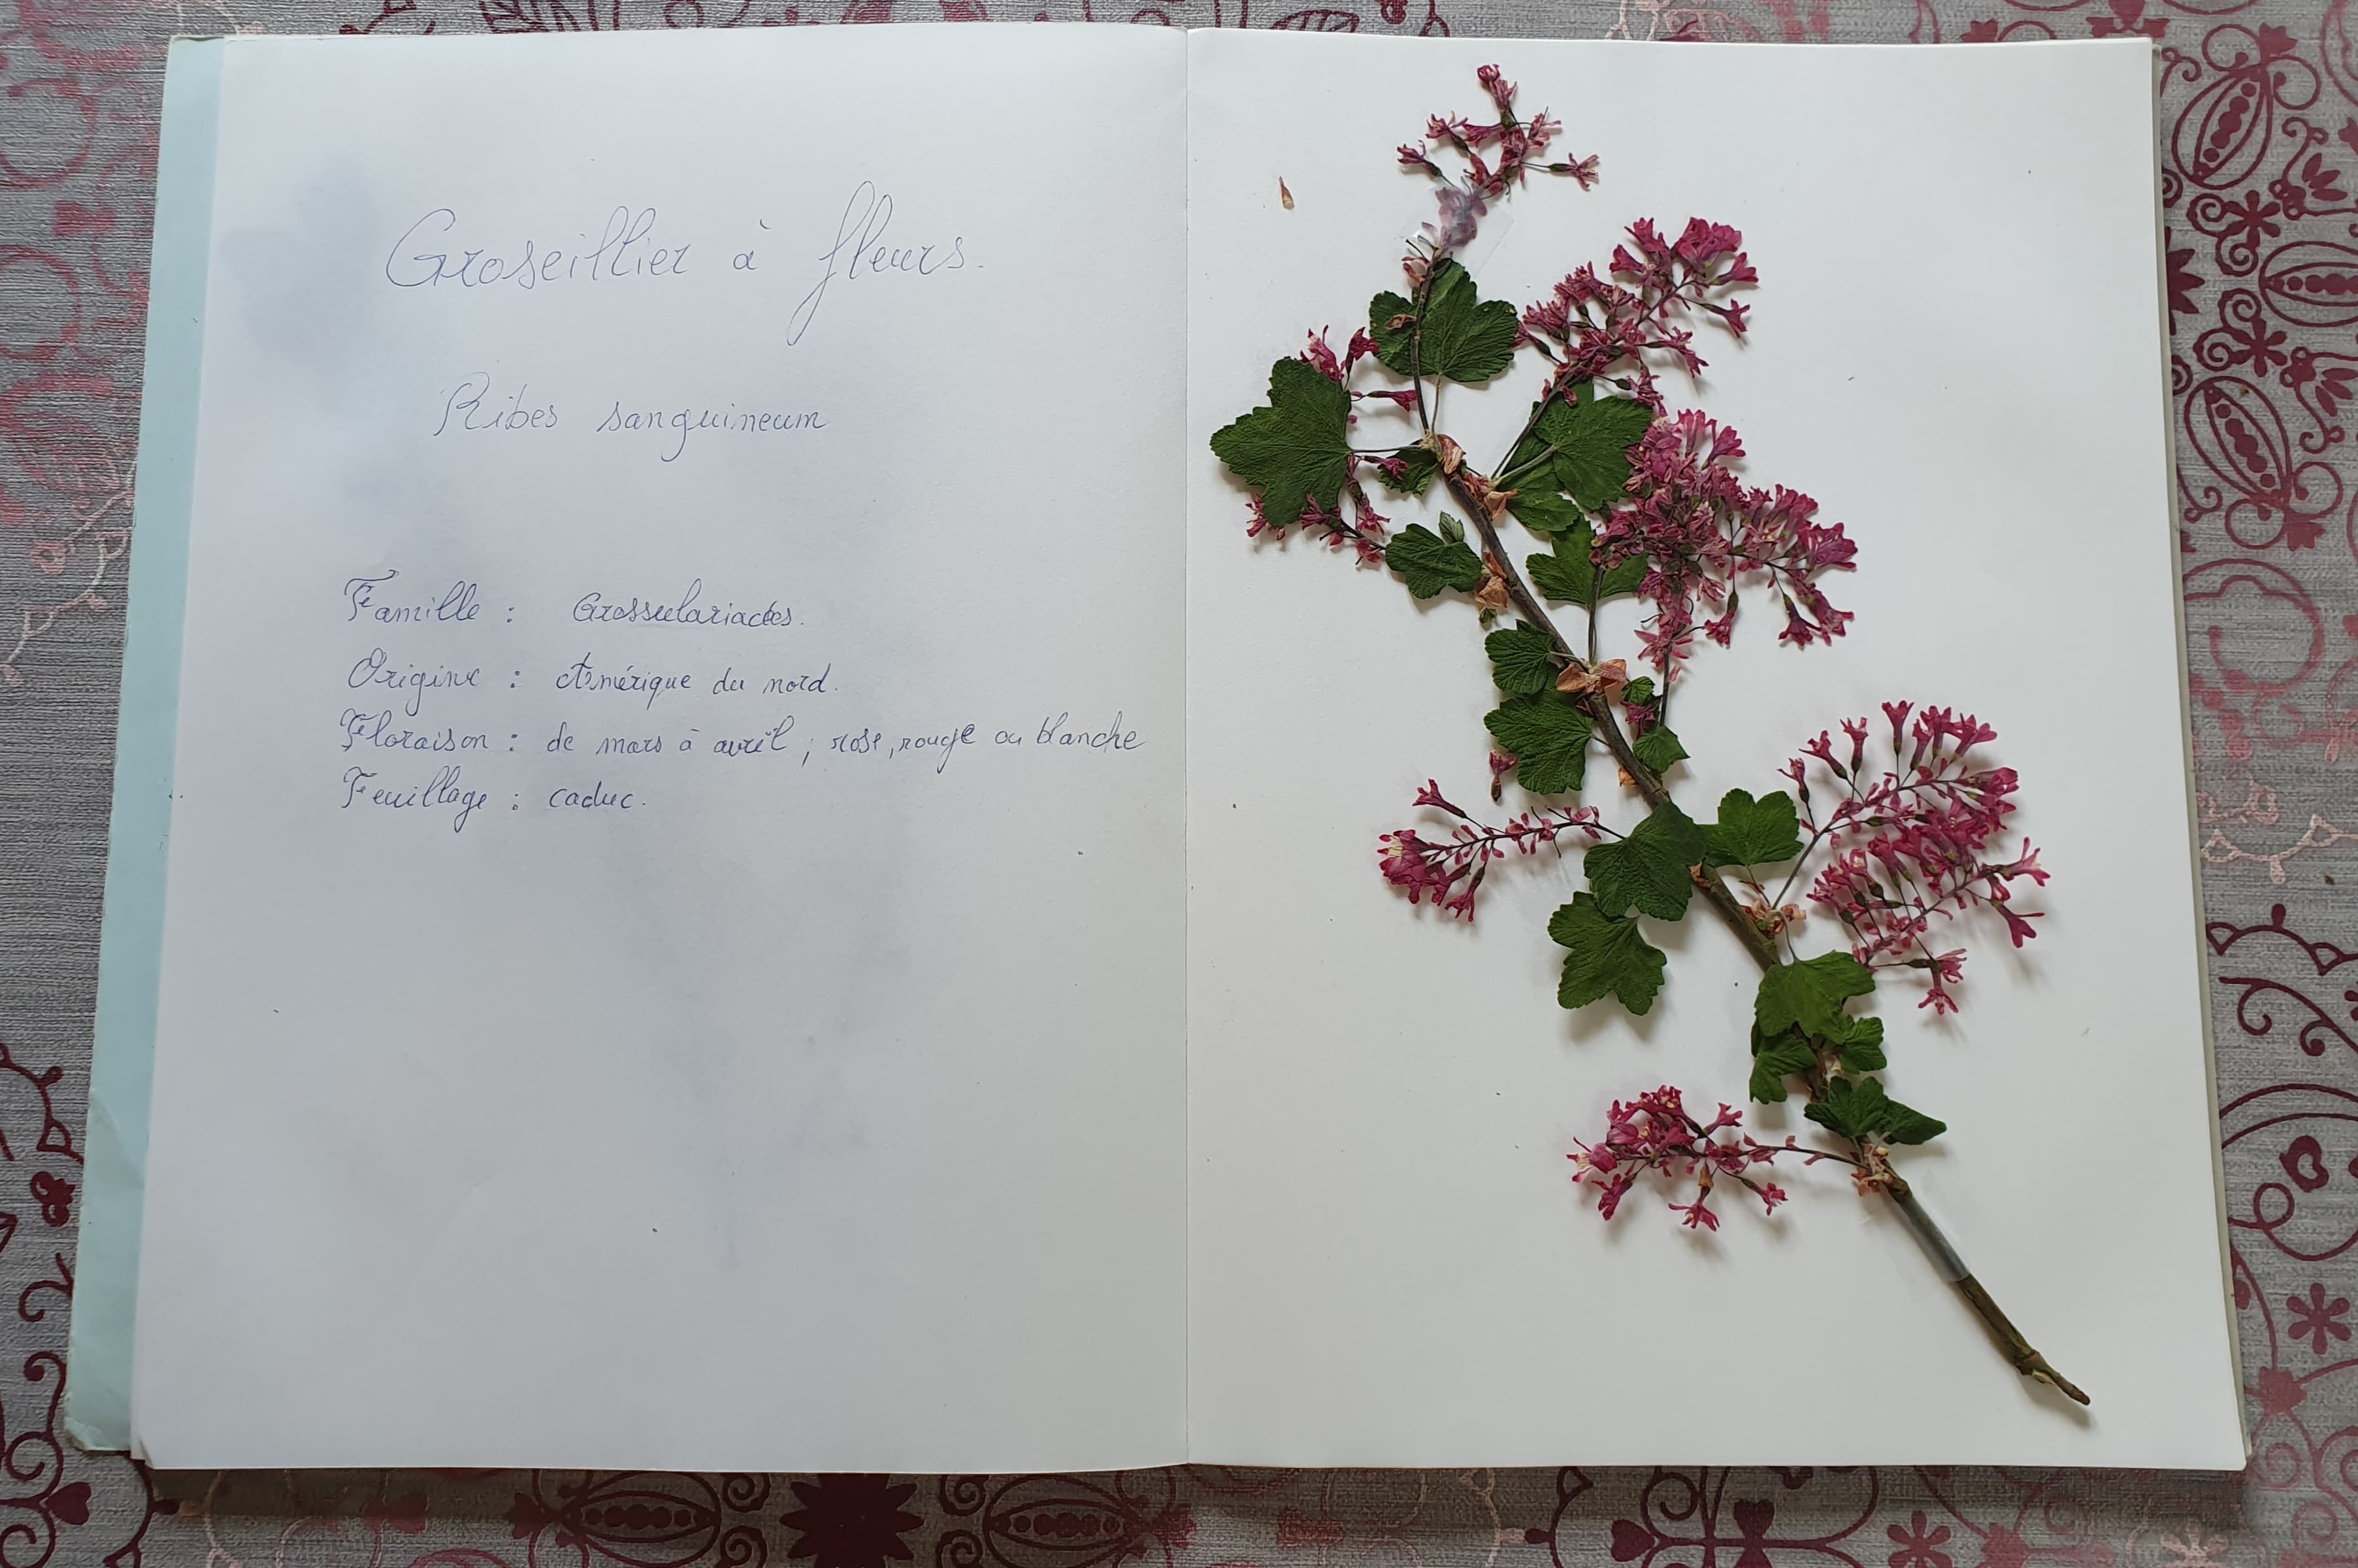 Groseillier à fleurs.
Ribes sanguineum
Famille : Grossulariacées.
Origine : Amérique du nord.
Floraison : de mars à avril ; rose, rouge ou blanche
Feuillage : caduc.